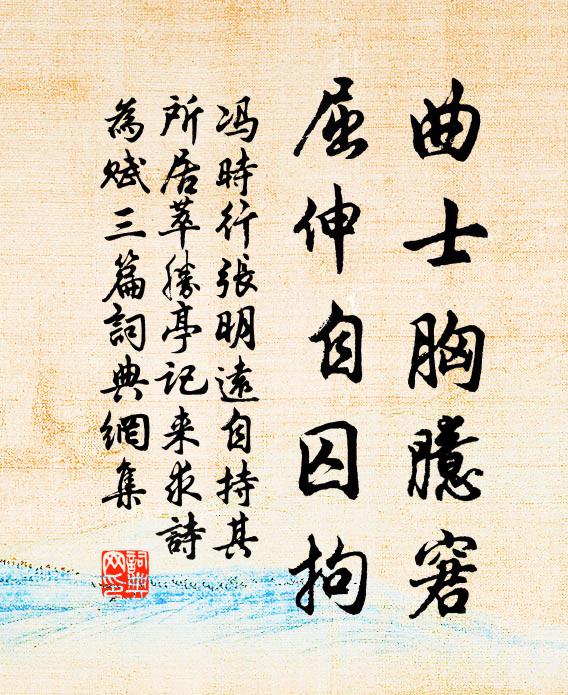 曲士胸臆窘
屈伸自囚拘
冯時行張明遠自持其
所居萃勝亭記来求詩
為赋三篇詞典網集
詞典网印